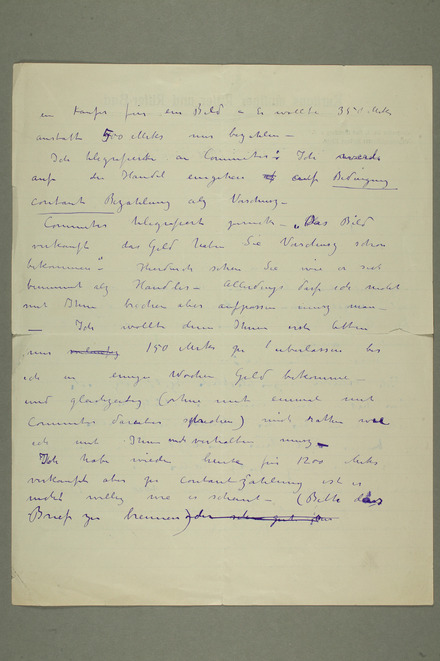 ein Käufer für ein Bild – Er wollte 350 Mks
anstatt 500 Mks nur bezahlen –
Ich telegrafierte an Commeter: Ich werde
auf den Handel eingehen auf Bedingung
contant Bezahlung als Vorschuss –
Commeter telegrafiert zurück – „Das Bild
verkauft das Geld haben Sie Vorschuss schon
bekommen“. Hierdurch sehen Sie wie er sich
benimmt als Händler – Allerdings darf ich nicht
mit Ihm brechen aber aufpassen muss man –
– Ich wollte denn Ihnen erst bitten
mir 150 Mks zu überlassen bis
ich in einige Wochen Geld bekomme –
und gleichzeitig (ohne mit einmal mit
Commeter darüber sprechen) mich rathen wie
ich mit Ihm mich verhalten muss –
Ich habe wieder heute für 1200 Mks
verkauft aber zu contant Zahlung ist er
nicht willig wie es scheint – (Bitte das
Brief zu brennen)